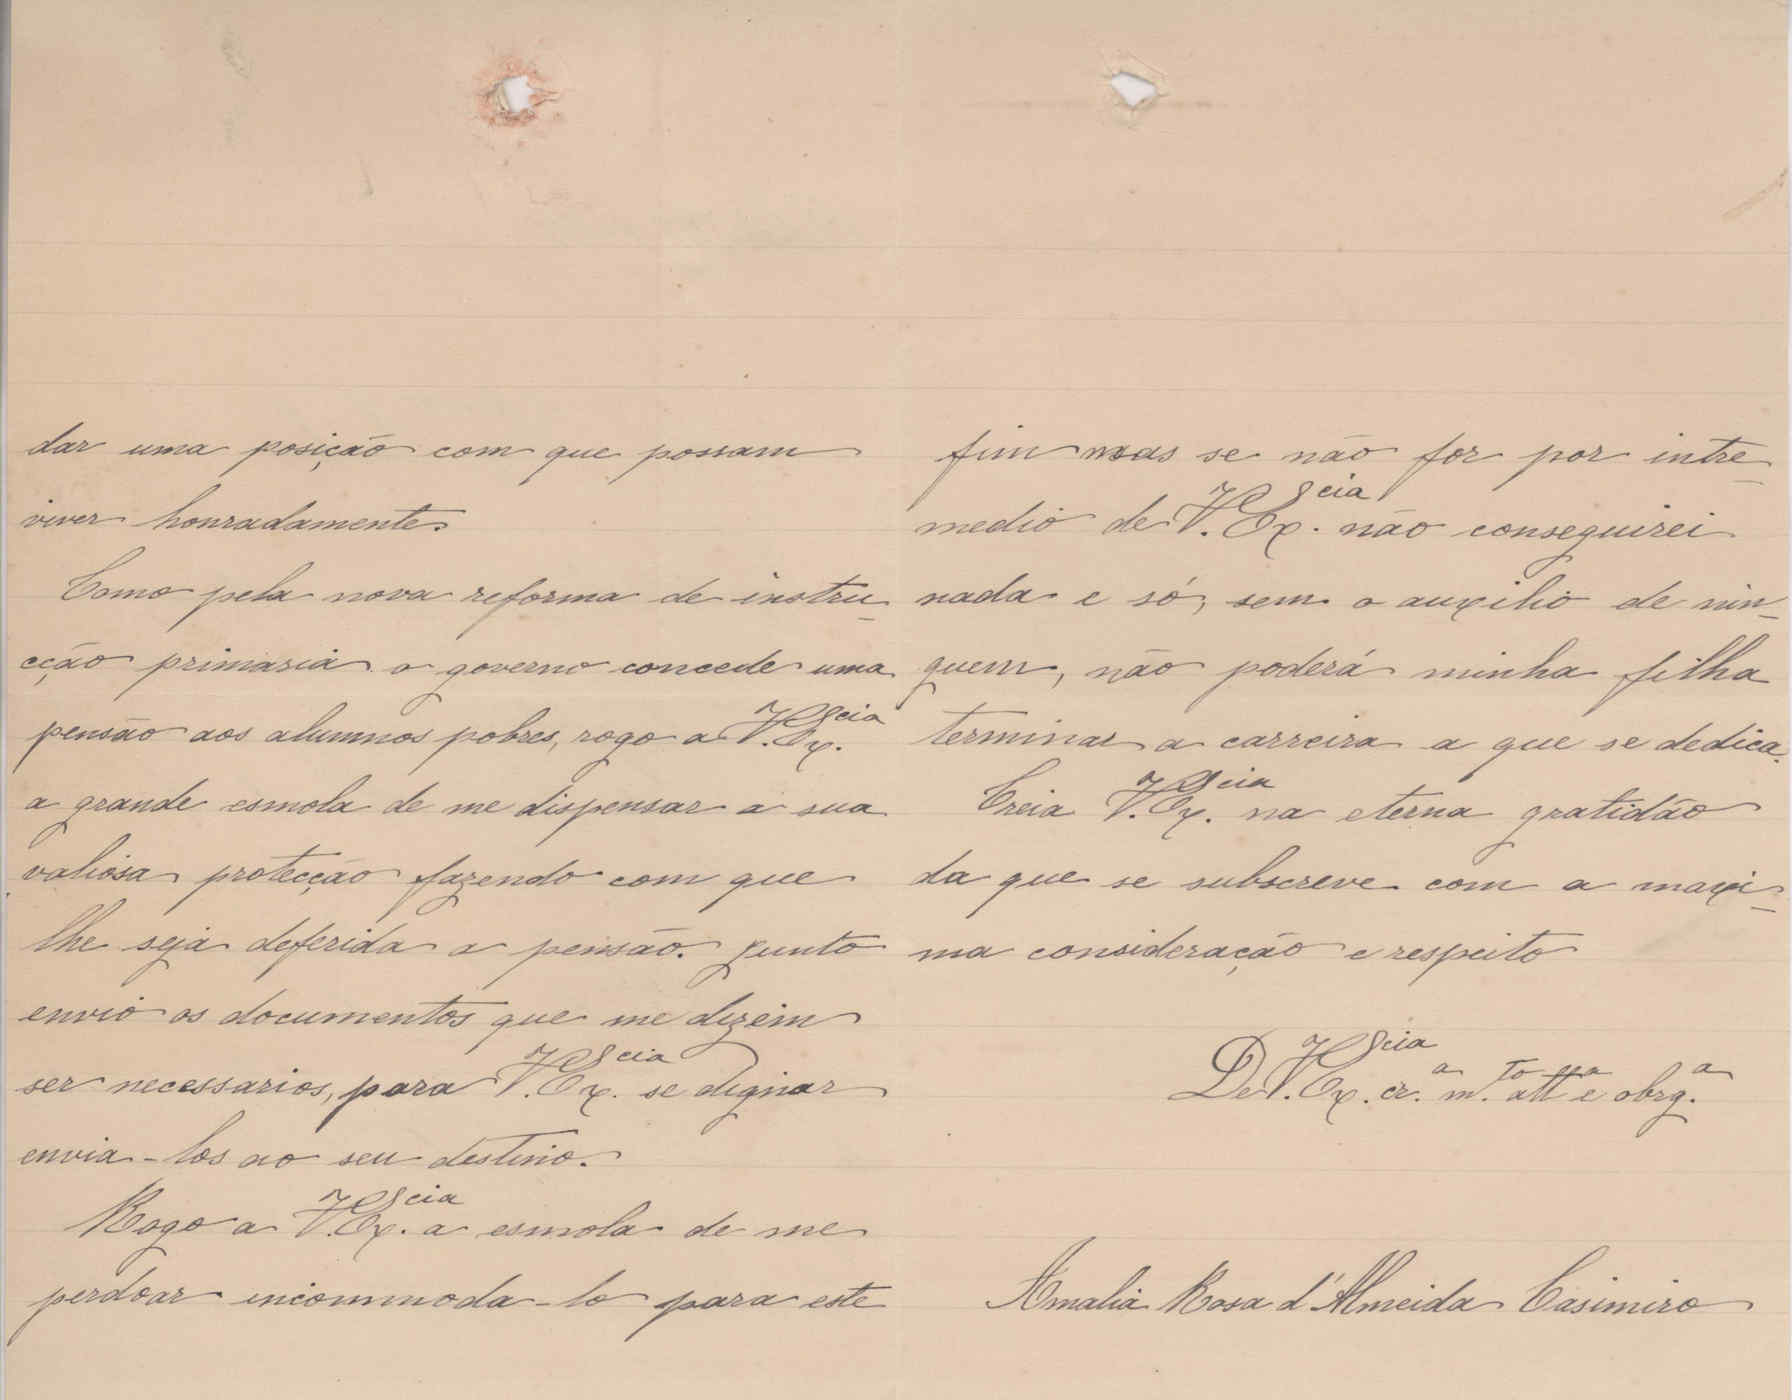 dar uma posição com que possam
viver honradamente.
Como pela nova reforma de instru-
cção primaria o governo concede uma
pensão aos alumnos pobres, rogo a V. Ex.cia
a grande esmola de me dispensar a sua
valiosa protecção fazendo com que
lhe seja deferida a pensão. Junto
envio os documentos que me dizem
ser necessarios, para V. Ex.cia se dignar
envia-los ao seu destino.
Rogo a V. Ex.cia a esmola de me
perdoar incommoda-lo para este
fim mas se não for por intre-
medio de V. Ex.cia não conseguirei
nada e só, sem o auxilio de nin-
guem, não poderá minha filha
terminar a carreira a que se dedica.
Creia V. Ex.cia na eterna gratidão
da que se subscreve com a maxi-
ma consideração e respeito
De V. Ex.cia cr.a m.to att.a e obrg.a
Amalia Rosa d'Almeida Casimiro